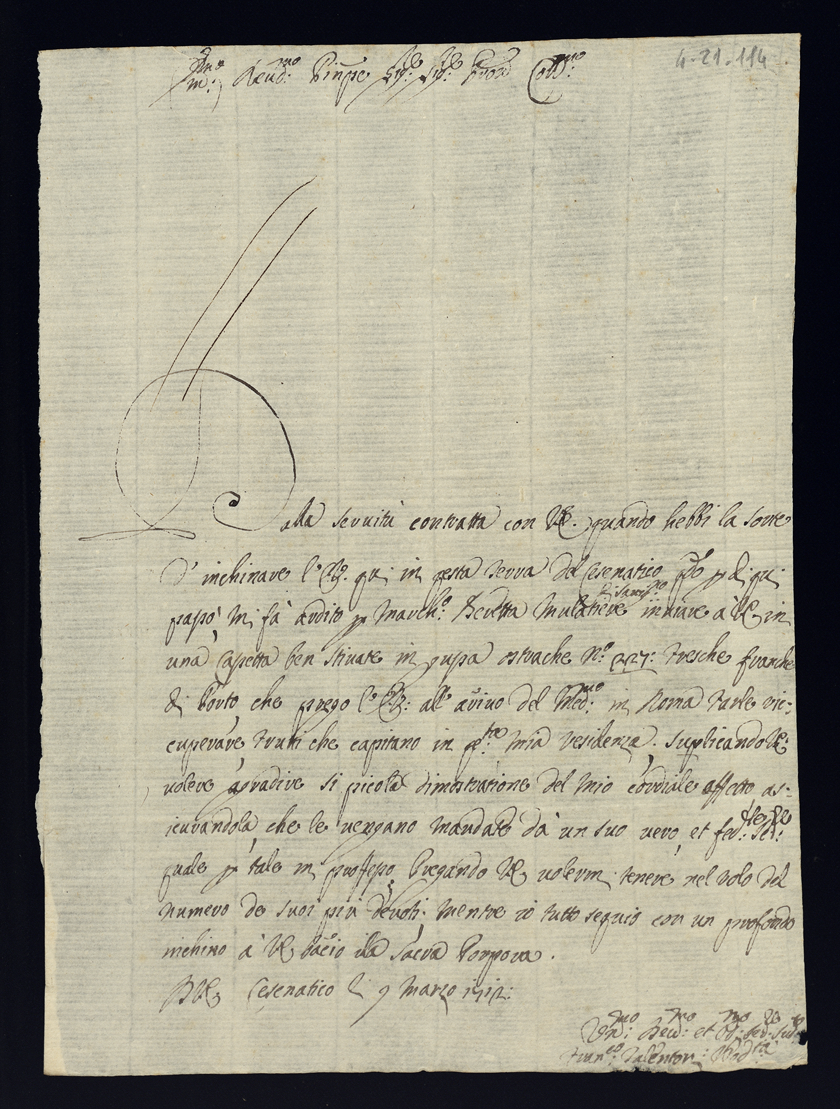 4-21-114
Em:mo Reud:mo Prinpe Sig:re Sig:re Pron Coll:mo
Dalla seruitù contratta con VE. quando hebbi la sorte
d'inchinare l'E.V. qui in questa terra del Cesenatico
passò mi fà ardito p March:o Mulatiere di Sarsi:o inuiare à VE in
una Capetta ben stiuate in ostrache N:o 227: fresche franche
di Porto, che prego l'E.V: all'ariuo del Med:mo in Roma farle ric:
cuperare frutti che capitano in q:sta mia residenza. Suplicando VE:
uolere agradire si picola dimostratione del mio cordiale affetto as:
sicurandola, che le uengano mandate dà un suo uero, et fed:le Se:re
quale p tale mi proffesso Pregando VE uolermi tenere nel rolo del
numero de suoi più deuoti: mentre io tutto seguio con un profondo
inchino à VE bacio illa Sacra Porpora.
D VE Cesenatico li 9 Marzo 1712:
Um:mo Deu:mo et Ob:mo fed: Ser:
Fran:co Valentini